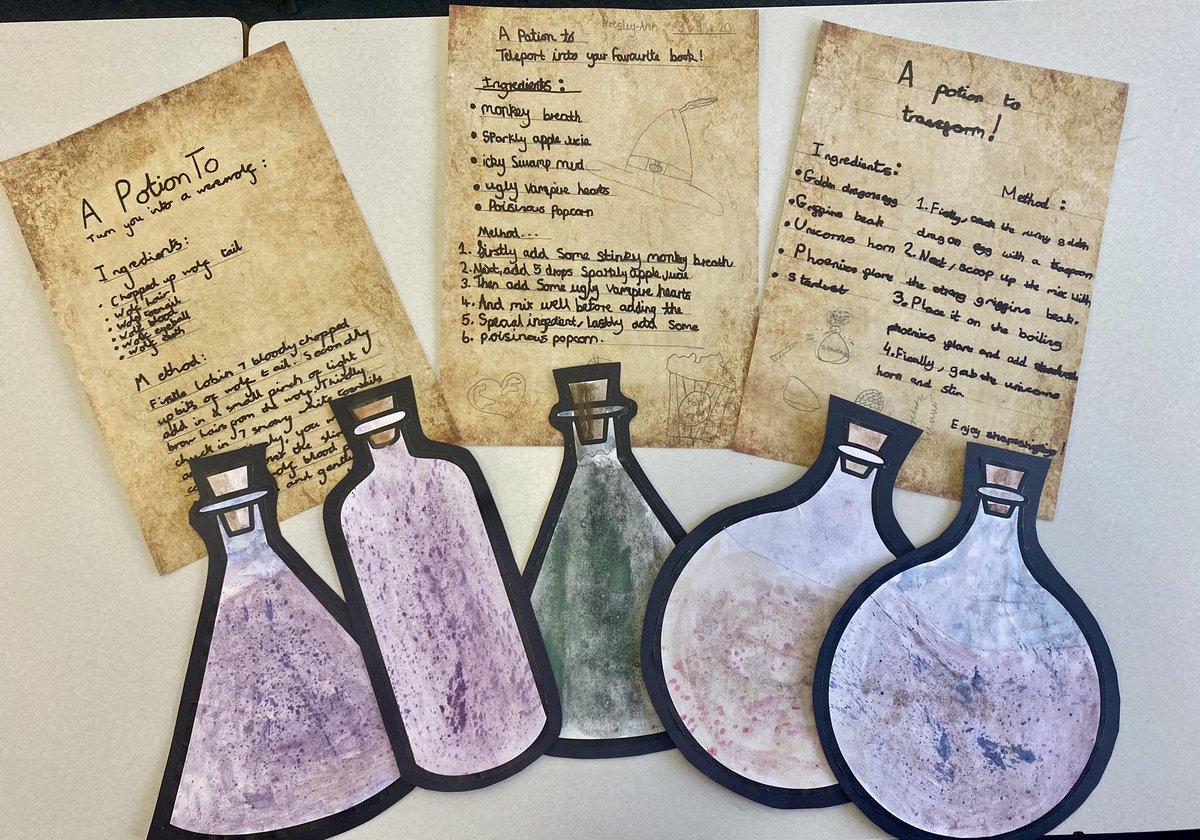 A Potion To
Turn you into a werewolf :
Ingredients:
• Chopped up wolf tail
• wolf hair
• wolf toenail
• wolf blood
• wolf eyeball
• wolf tooth
Method:
Firstle lobin 7 bloody chopped
up bits of wolf tail. Secondly
add in a small pinch of light
brow hairs from the wolf. Thirdly
chuck in 7 snowy white toenails
you
over the
wolf blood
and gently
Presley-Ann
A Potion to
Teleport into your favourite book!
Ingredients :
• monkey breath
• Sparkly apple jucie
• icky Swamp mud
• ugly vampire hearts
• Poisinous Popcorn
Method...
1. firstly add Some stinky monkey breath
2. Next, add 5 drops Sparkly apple jucie
3. Then add Some ugly vampire hearts
4. And mix well before adding the
5. Special ingedient, lastly add some
6. poisinous popcorn.
A potion to
transform!
Ingredients:
• Goldn dragon egg
• Griffins beak
• Unicorns horn
• Phoenixs flare
• stardust
Method :
1. Firstly, crack the runny goldn
dragon egg with a teaspoon
2. Next, scoop up the mix with
the strong griffins beak.
3. Place it on the boiling
phoenixs flare and add stardust
4. Finally, grab the unicorns
horn and stir.
Enjoy shapeshifting!